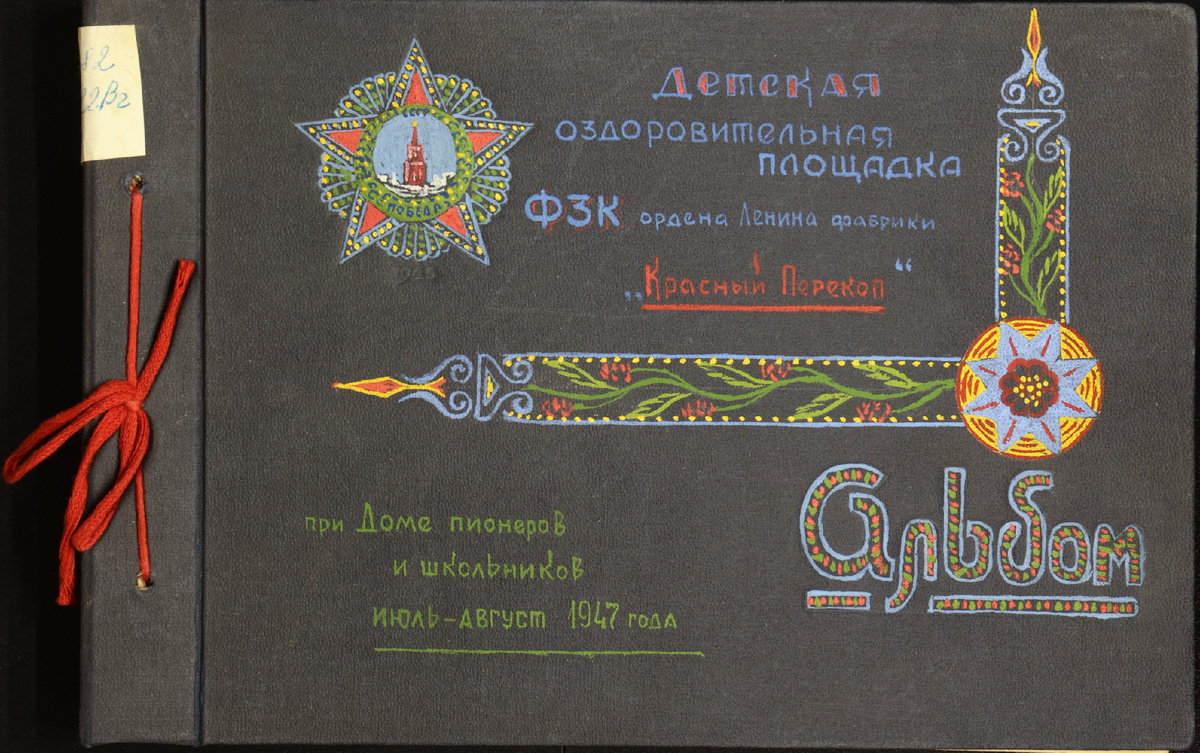 82
2Вг
СССР
ПОБЕДА
Детская
оздоровительная
площадка
ФЗК ордена Ленина фабрики
„Красный Перекоп“
Альбом
при Доме пионеров
и школьников
июль-август 1947 года